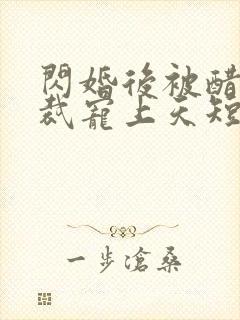 閃婚後被醋
裁寵上天短
一步滄桑